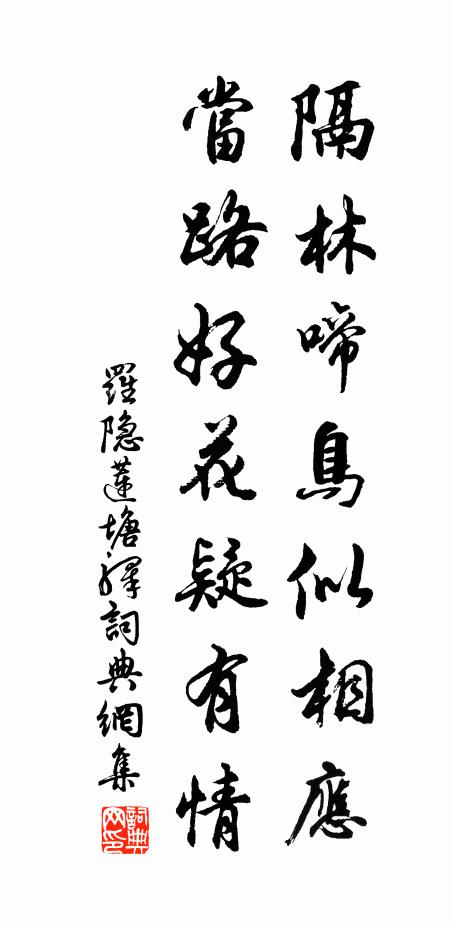 隔林啼鳥似相應
當路好花疑有情
羅隐蓮塘驛詞典網集
詞典网印